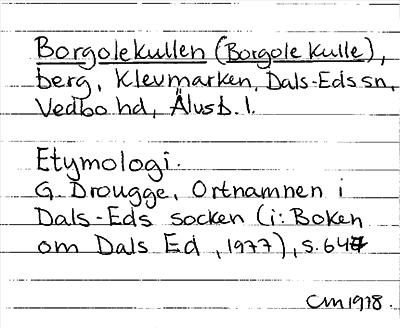 Borgolekullen (Borgole Kulle),
berg, Klevmarken, Dals-Eds sn,
Vedbo hd, Älvsb. l.
Etymologi.
G. Drougge, Ortnamnen i
Dals-Eds socken (i: Boken
om Dals Ed, 1977), s. 647
CM 1978.